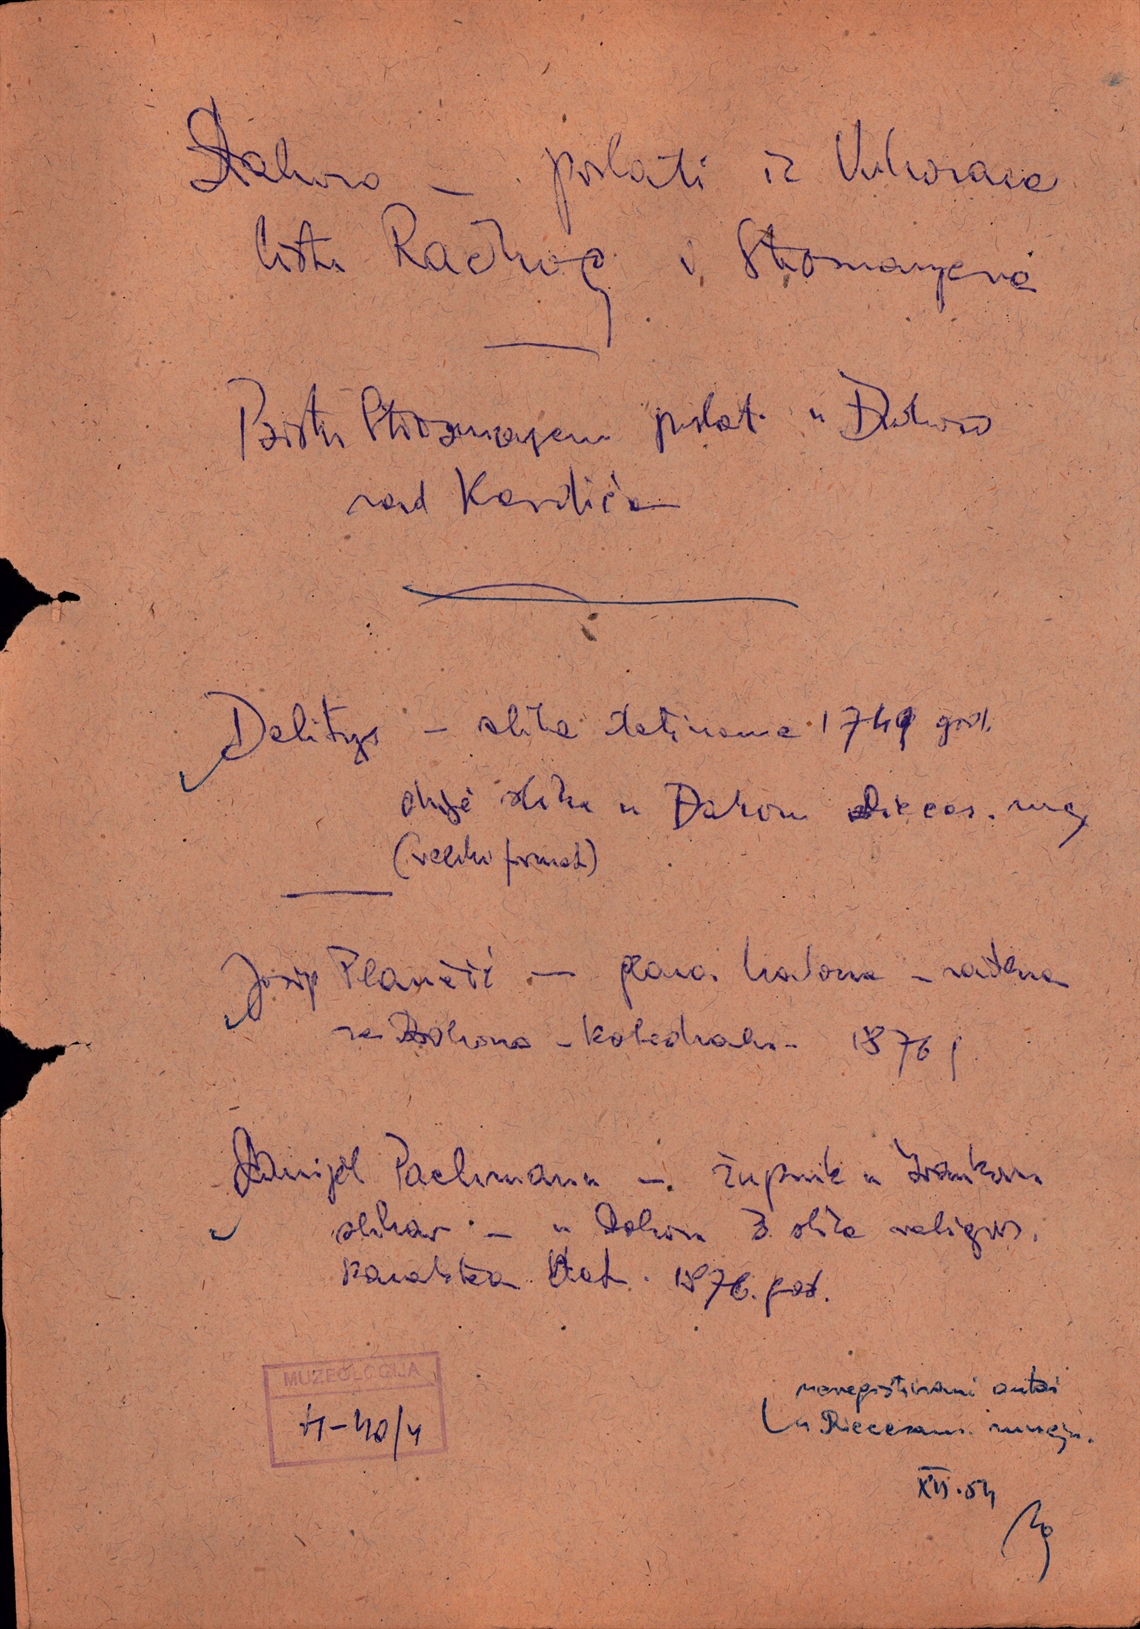 Đakovo – poslati iz Vukovara
bistu Račkog i Strosmayera
Bistu Strosmayera poslati u Đakovo
rad Kardića
Delitys – slika datirana 1749 god.
dvije slike u Đakovu Dieces. muz
(veliki format)
Josip Plančić – glava – rađena
za Đakovo – katedralu – 1876 g
Danijel Pachmann – župnik u
slikar – u Đakovu 3 slike religioz.
karaktera Dat. 1876. god.
MUZEOLOGIJA
H-40/4
neregistrirani autori
u Diecezans. muzeju.
XII.54